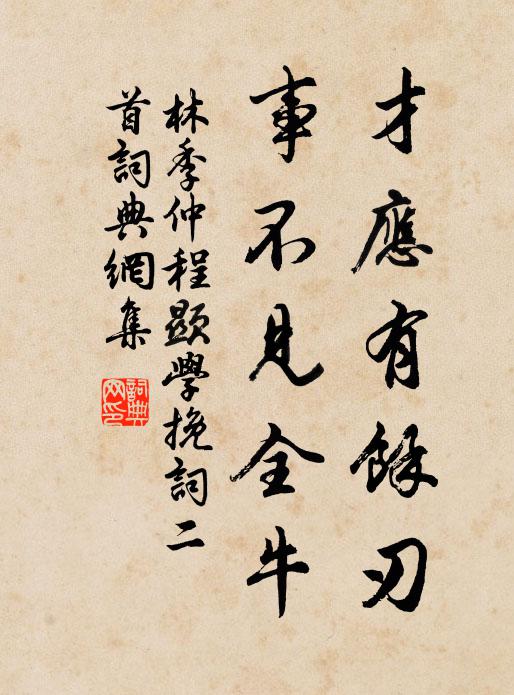 才應有餘刃
事不見全牛
林季仲程顯學挽詞二
首詞典網集
詞典網印